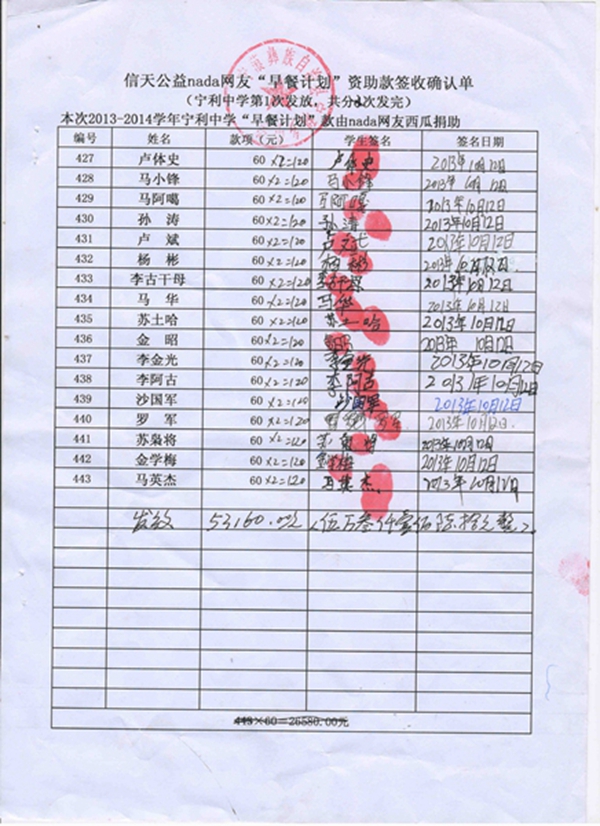 信天公益nada网友“早餐计划”资助款签收确认单
(宁利中学第1次发放,共分2次发完)
本次2013-2014学年宁利中学“早餐计划”款由nada网友西瓜捐助
编号 姓名 款项(元) 学生签名 签名日期
427 卢体史 60×2=120 卢体史 2013年10月12日
428 马小锋 60×2=120 马小锋 2013年10月12日
429 马阿噶 60×2=120 马阿嘎 2013年10月12日
430 孙涛 60×2=120 孙涛 2013年10月12日
431 卢斌 60×2=120 2013年10月12日
432 杨彬 60×2=120 杨彬 2013年10月12日
433 李古干母 60×2=120 2013年10月12日
434 马华 60×2=120 马华 2013年10月12日
435 苏土哈 60×2=120 苏土哈 2013年10月12日
436 金昭 60×2=120 2013年10月12日
437 李金光 60×2=120 李金光 2013年10月12日
438 李阿古 60×2=120 李阿古 2013年10月12日
439 沙国军 60×2=120 沙国军 2013年10月12日
440 罗军 60×2=120 罗军 2013年10月12日
441 苏枭将 60×2=120 苏枭将 2013年10月12日
442 金学梅 60×2=120 金学梅 2013年10月12日
443 马英杰 60×2=120 马英杰 2013年10月12日
发放 53160.00元 (伍万叁仟壹佰陆拾元整)
443×60=26580.00元